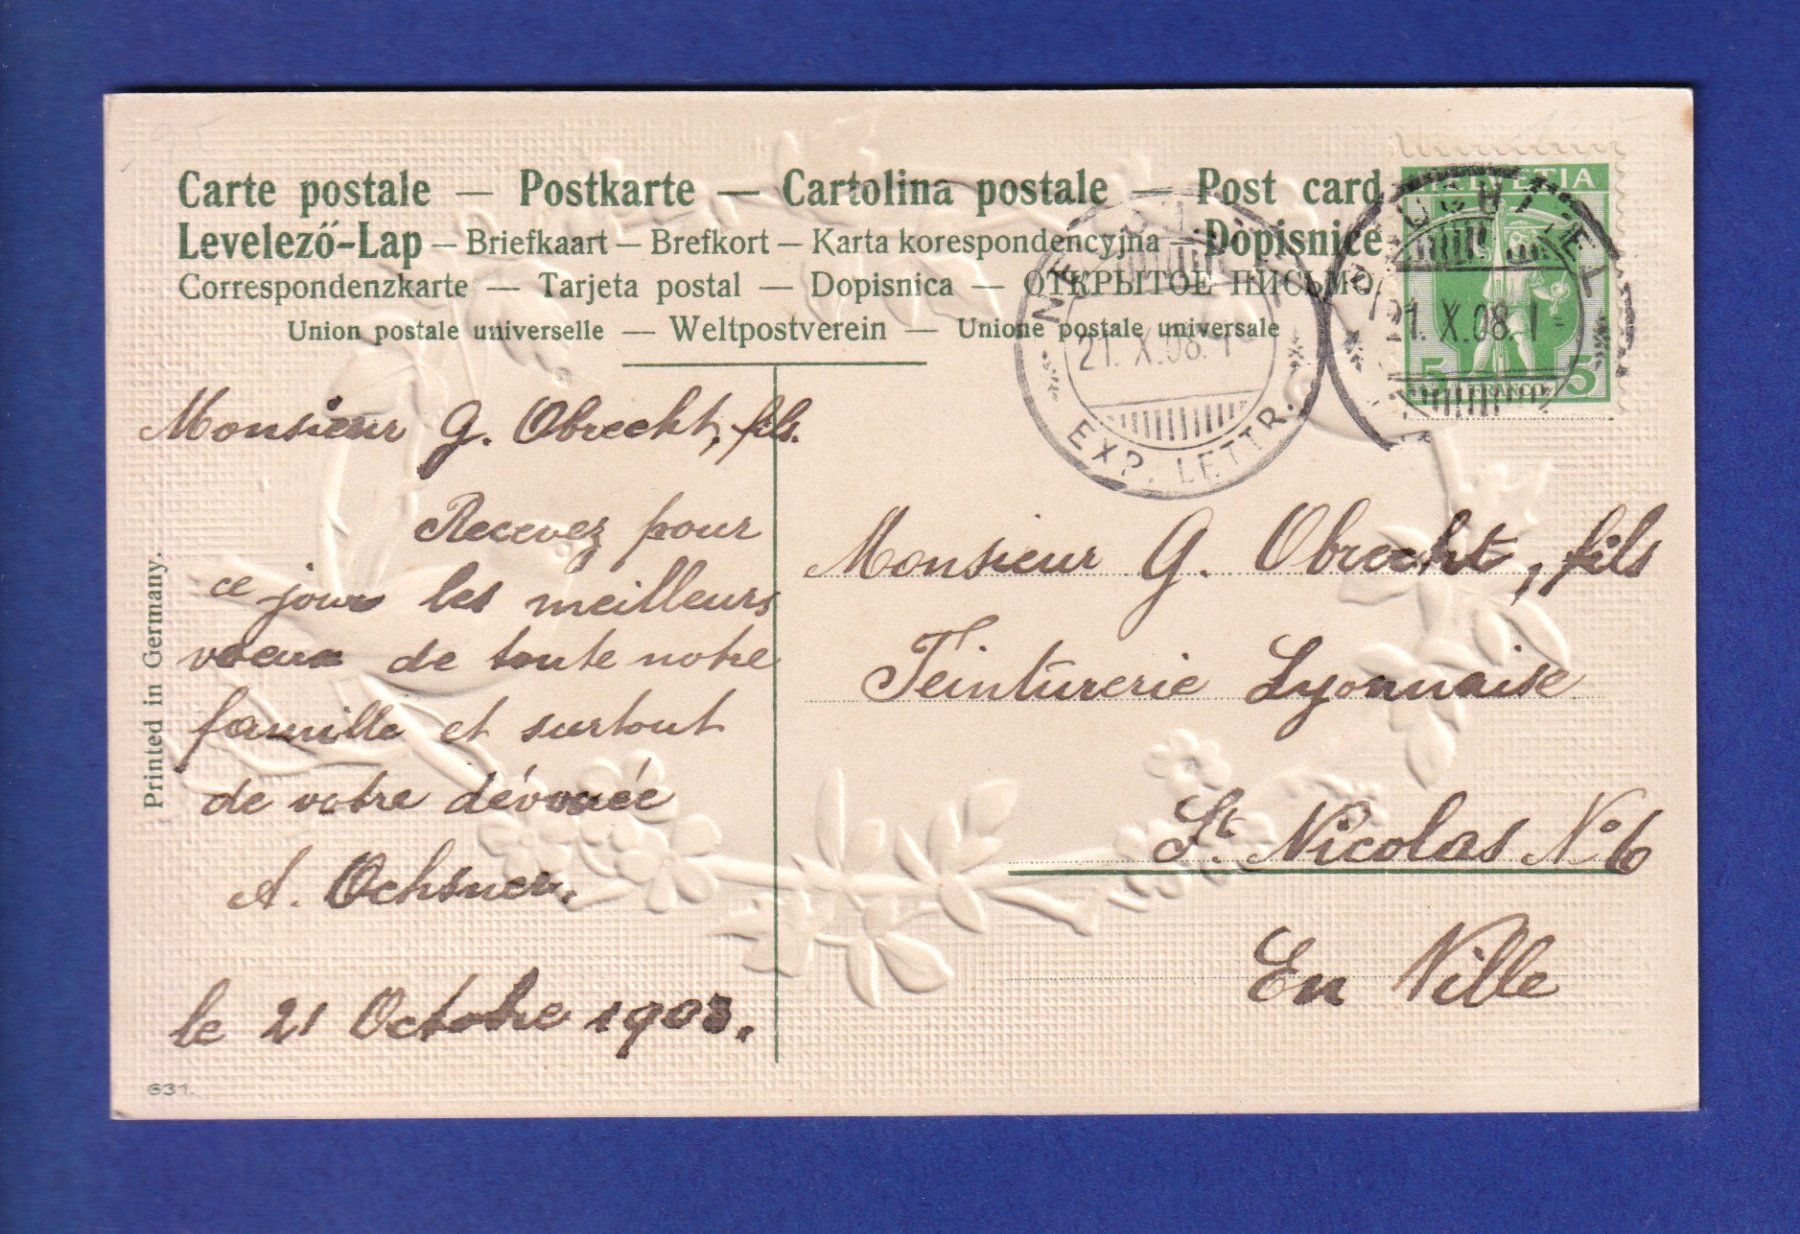 Carte postale — Postkarte — Cartolina postale — Post card
Levelező-Lap — Briefkaart — Brefkort — Karta korespondencyjna — Dopisnice
Correspondenzkarte — Tarjeta postal — Dopisnica — ОТКРЫТОЕ ПИСЬМО
Union postale universelle — Weltpostverein — Unione postale universale
HELVETIA
5 FRANCO 5
21. X.08. 1-
21. X.08. 1-
EXP. LETTR.
Monsieur G. Obrecht, fils.
Recevez pour
ce jour les meilleurs
voeux de toute notre
famille et surtout
de votre dévouée
A. Ochsner.
le 21 Octobre 1908.
Monsieur G. Obrecht, fils
Teinturerie Lyonnaise
St. Nicolas No 6
En Ville
Printed in Germany.
631.